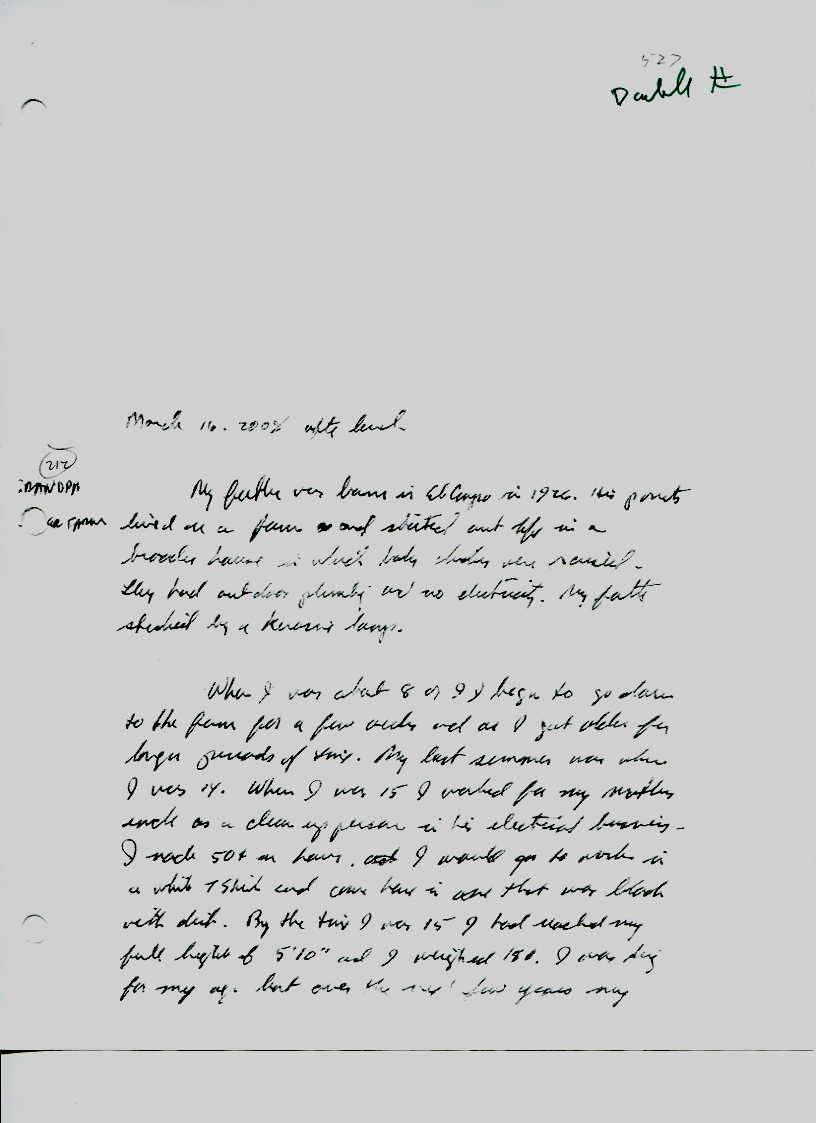 527
Double H
March 16. 2008 after lunch
212
GRANDPA
FARM
My father was born in El Campo in 1926. His parents
lived on a farm and started out life in a
brooder house in which baby chicks were raised.
They had outdoor plumbing and no electricity. My father
studied by a Kerosine lamp.
When I was about 8 or 9 I began to go down
to the farm for a few weeks and as I got older for
longer periods of time. My last summer was when
I was 14. When I was 15 I worked for my mothers
uncle as a clean up person in his electrical business.
I made 50¢ an hour. I would go to work in
a white T Shirt and come home in one that was black
with dirt. By the time I was 15 I had reached my
full height of 5'10" and I weighed 180. I was big
for my age but over the next few years my